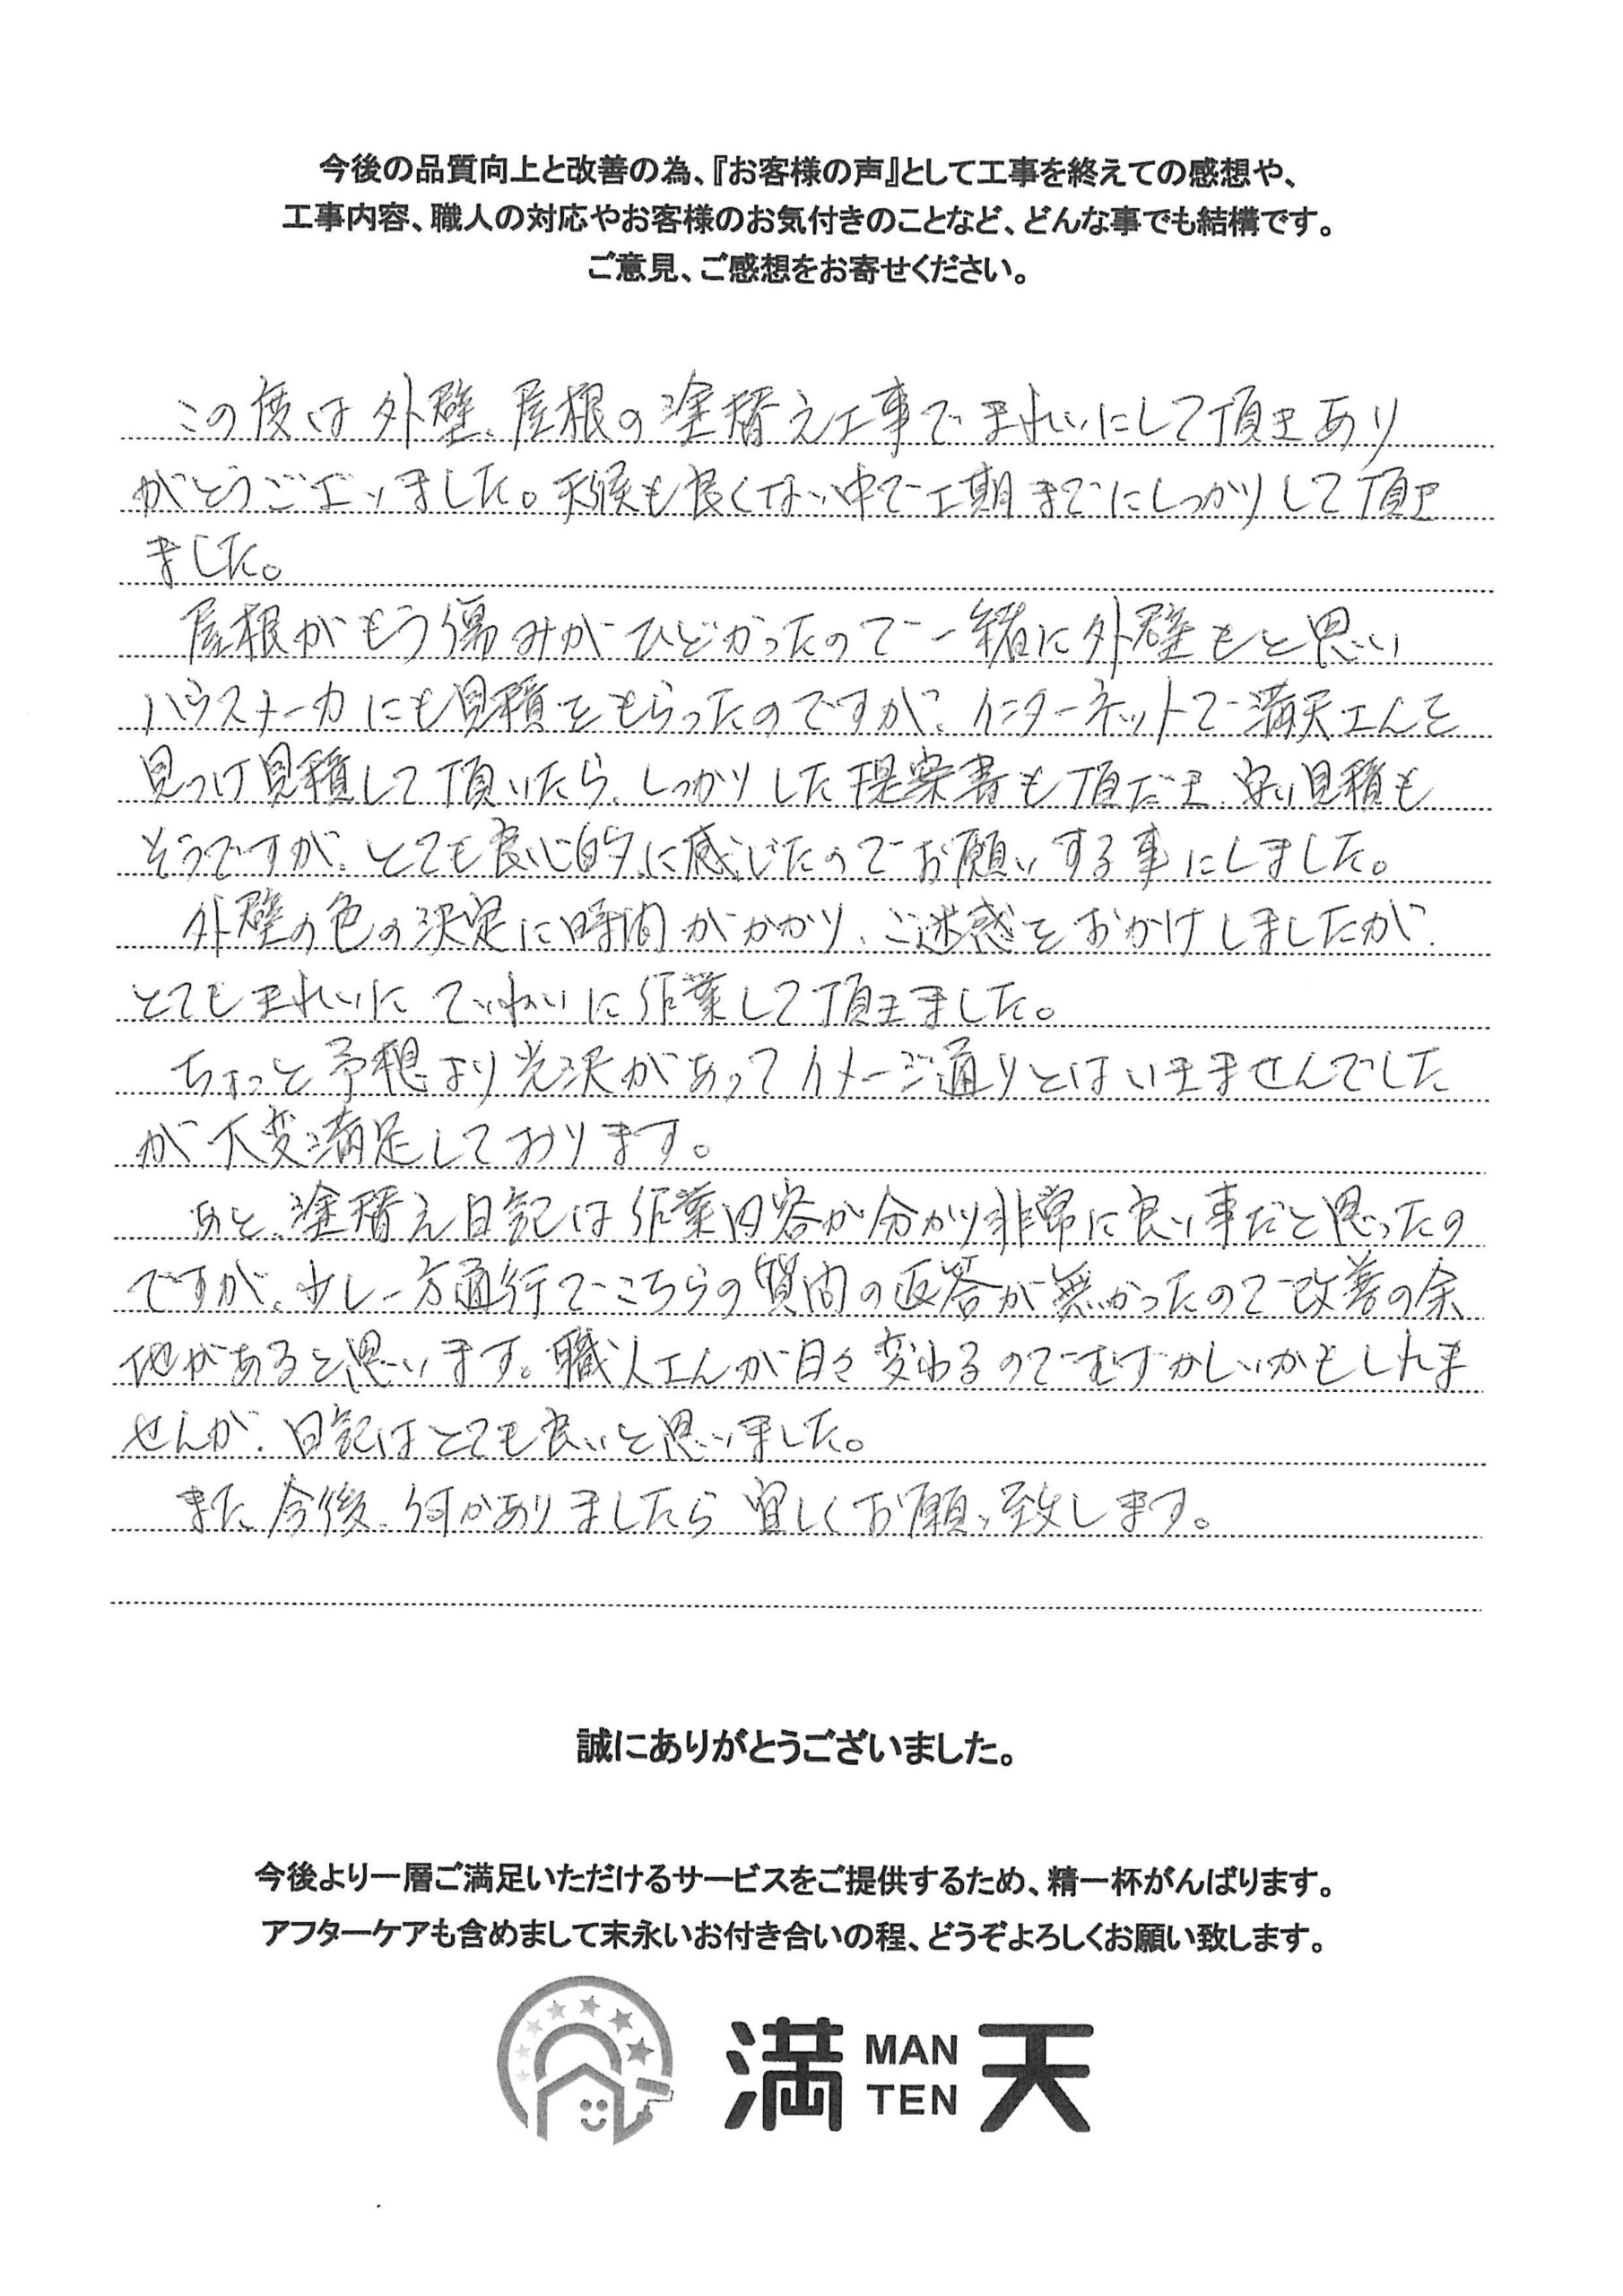 今後の品質向上と改善の為、『お客様の声』として工事を終えての感想や、
工事内容、職人の対応やお客様のお気付きのことなど、どんな事でも結構です。
ご意見、ご感想をお寄せください。
この度は外壁、屋根の塗替え工事できれいにして頂きあり
がとうございました。天候も良くない中で工期までにしっかりして頂き
ました。
屋根がもう傷みがひどかったので一緒に外壁もと思い
ハウスメーカにも見積をもらったのですが、インターネットで満天さんを
見つけ見積して頂いたら、しっかりした提案書も頂だき、安い見積も
そうですが、とても良心的に感じたのでお願いする事にしました。
外壁の色の決定に時間がかかり、ご迷惑をおかけしましたが、
とてもきれいにていねいに作業して頂きました。
ちょっと予想より光沢があってイメージ通りとはいきませんでした
が大変満足しております。
あと、塗替え日記は作業内容が分かり非常に良い事だと思ったの
ですが、少し一方通行でこちらの質問の返答が無かったので改善の余
地があると思います。職人さんが日々変わるのでむずかしいかもしれま
せんが、日記はとても良いと思いました。
また、今後、何かありましたら宜しくお願い致します。
誠にありがとうございました。
今後より一層ご満足いただけるサービスをご提供するため、精一杯がんばります。
アフターケアも含めまして末永いお付き合いの程、どうぞよろしくお願い致します。
満 MAN TEN 天